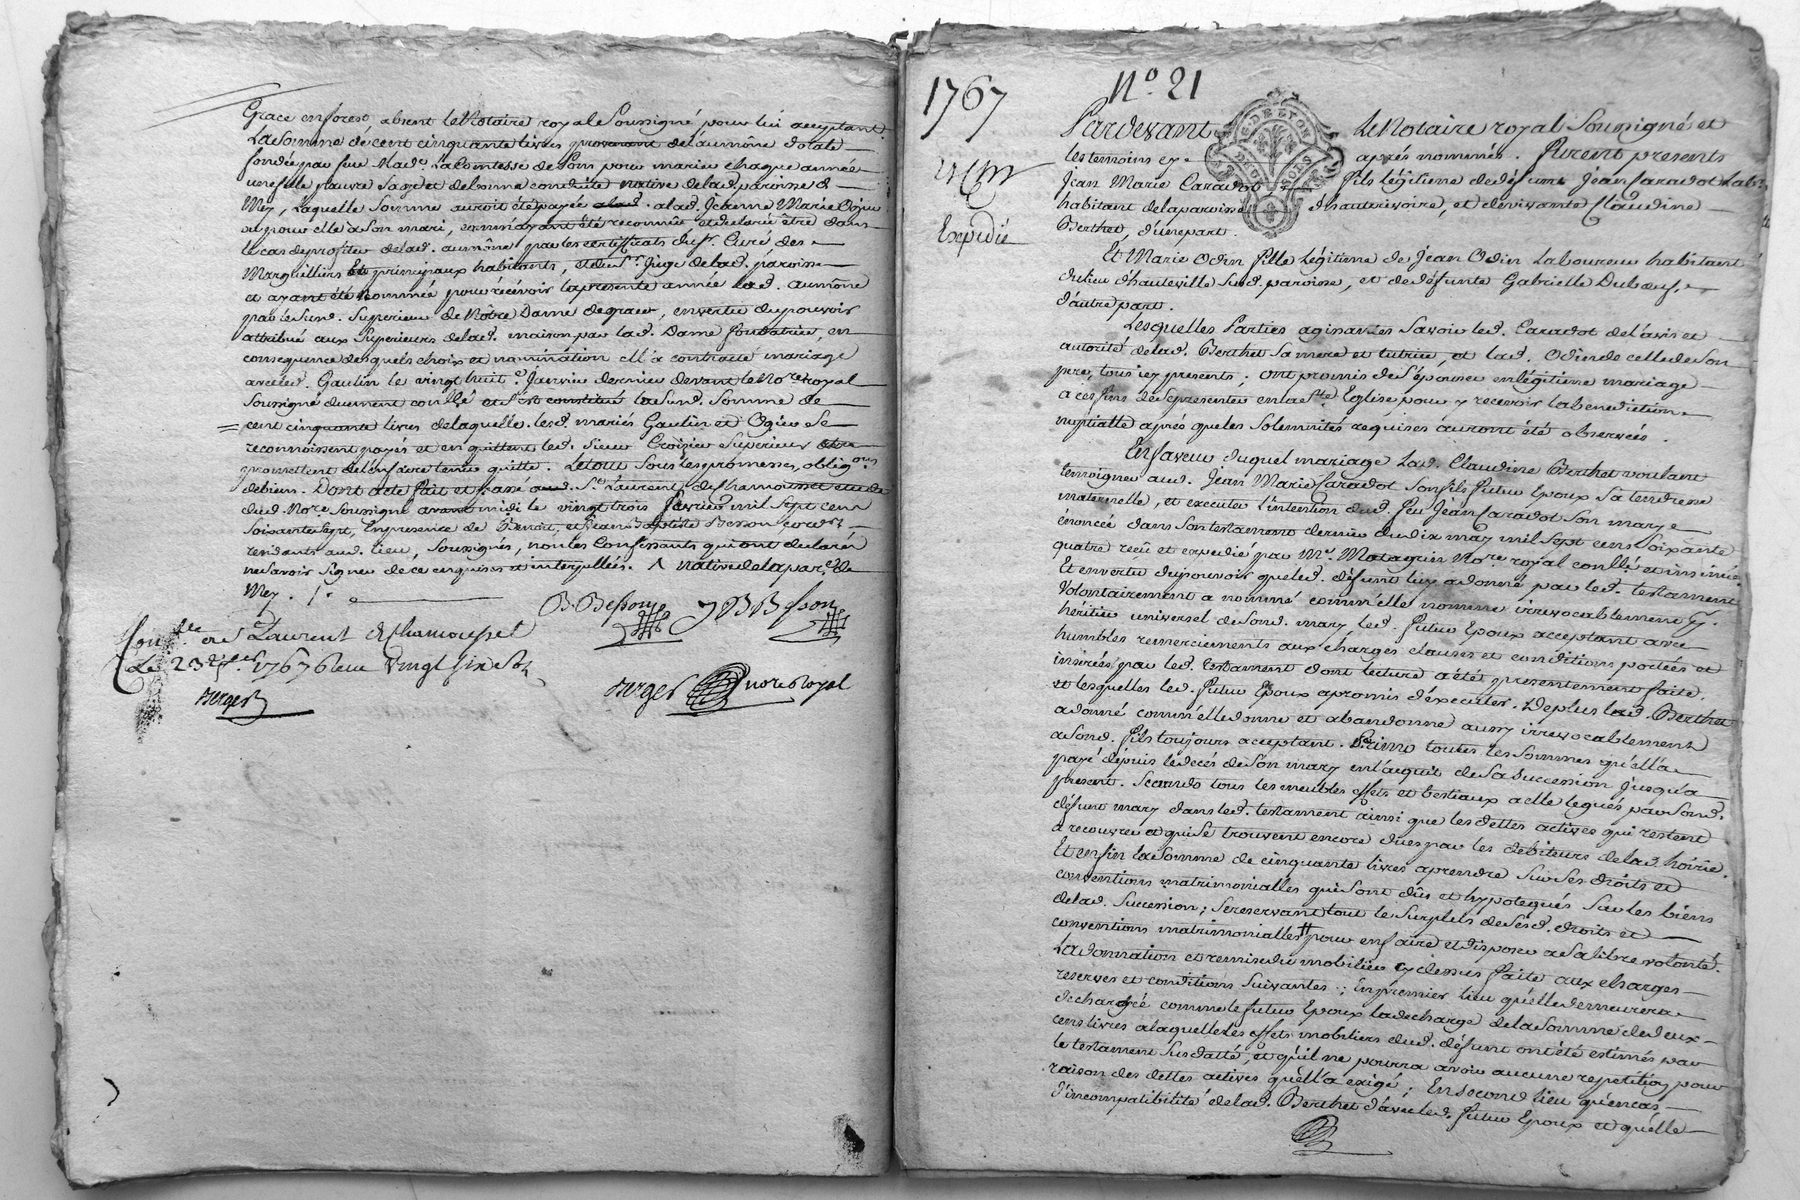 Grace en forest absent le Notaire royal Soussigné pour lui acceptant
La Somme de cent cinquante livres provenant de l'aumône dotale
fondée par feu Made. La Comtesse de pour marier chaque année
une fille pauvre Sage et de bonne conduite native de lad. paroisse d
Mey, Laquelle Somme auroit été payée a lad. Jeanne Marie Ogier
ou pour elle a Son mari, comm'ayant été reconnüe et declarée être dans
le cas de profiter de lad. aumône par les certifficats du Sr. Curé des
Marguilliers et principaux habitants, et du Sr. Juge de lad. paroisse
et ayant été Nommée pour récévoir la presente année lad. aumône
par le Susd. Superieur de Nôtre Dame de grace, en vertu du pouvoir
attribué aux Superieurs de lad. maison par lad. Dame fondatrice, en
consequence desquels choix et nomination ell'a contracté mariage
avec led. Gaulin le vingt huit e. Janvier dernier devant le Nore. royal
Soussigné duement conllé et S'est constitué la Susd. Somme de
cent cinquante livres de laquelle. lesd. mariés Gaulin et Ogier Se
reconnoissent payés et en quittent led. Sieur Croizier Superieur
promettent de l'en faire tenir quitte. Le tout Sous les promesses, obligons.
de biens. Dont acte fait et passé aud. St. Laurent de Chamousset etude
dud. Nore. Soussigné avant midi le vingt trois fevrier mil Sept cent
Soixante Sept, En presence de Benoit, et Jean Baptiste Besson
residants aud. lieu, Soussignés, non les Confessants qui ont declaré
ne Savoir Signer de ce enquises et interpellées. Λ native de la par. de
Mey .
B. Besson J B Besson
Conllé a St Laurent de Chamousset
Le 23 1767 Reçu vingt six Sols
Berger
Berger nore Royal
1767
No. 21
G. DE LYON
Expedié
Pardevant Le Notaire royal Soussigné et
les temoins cy aprés nommés. furent presents
Jean Marie Caradot fils légitime de défunt Jean Caradot
habitant de la paroisse d'hauterivoire, et de vivante Claudine
Berthet, d'une part.
Et Marie Odin fille légitime de Jean Odin Laboureur habitant
du lieu d'hauteville Susd. paroisse, et de défunte Gabrielle Dubœuf,
d'autre part.
Lesquelles Parties agissantes Savoir led. Caradot de l'avis et
autorité de lad. Berthet Sa mere et tutrice, et lad. Odin de celle de Son
pere, tous icy presents; ont promis de S'épouser en légitime mariage
a ces fins de Se presenter en la Ste. Eglise pour y recevoir la benediction
nuptialle aprés que les Solemnités requises auront été observées.
En faveur duquel mariage lad. Claudine Berthet voulant
temoigner aud. Jean Marie Caradot Son fils futur Epoux Sa tendresse
maternelle, et executer l'intention dud. feu Jean Caradot Son mary
énoncée dans Son testament dernier du dix may mil Sept cent Soixante
quatre reçû et expedié par Me. Matagrin Nore. royal conllé et insinué
Et en vertu du pouvoir que led. défunt luy a donné par led. testament
Volontairement a nommé comm'elle nomme irrevocablement
heritier universel de Sond. mary led. futur Epoux acceptant avec
humbles remerciements aux charges clauses et conditions portées et
inserées par led. testament dont lecture a été presentement faite.
et lesquelles led. futur Epoux a promis d'éxecuter. De plus lad. Berthet
a donné comm'elle donne et abandonne aussy irrevocablement
a Sond. fils toujours acceptant. Primo toutes les Sommes qu'ell'a
payé dépuis le decés de Son mary en l'acquit de Sa Succession jusqu'a
present. Secundo tous les meubles effets et bestiaux a elle legués par Sond.
défunt mary dans led. testament ainsi que les dettes actives qui restent
a recouvrer et qui Se trouvent encore dües par les débiteurs de lad. hoirie.
Et enfin la Somme de cinquante livres a prendre Sur Ses droits et
conventions matrimonialles qui Sont dûs et hypotequés Sur les biens
de lad. Succession; Se reservant tout le Surplus de Sesd. droits et
conventions matrimonialles pour en faire et disposer a Sa libre volonté.
La donnation et remise du mobilier cy dessus faite aux charges
reserves et conditions Suivantes; En premier lieu qu'elle demeurera
dechargée comme le futur Epoux la decharge de la Somme de deux
cens livres a laquelle les effets mobiliers dud. défunt ont été estimés par
le testament Susdatté, et qu'il ne pourra avoir aucune repetition pour
raison des dettes actives qu'ell'a exigé; En Second lieu qu'en cas
d'incompatibilité de lad. Berthet d'avec led. futur Epoux et qu'elle